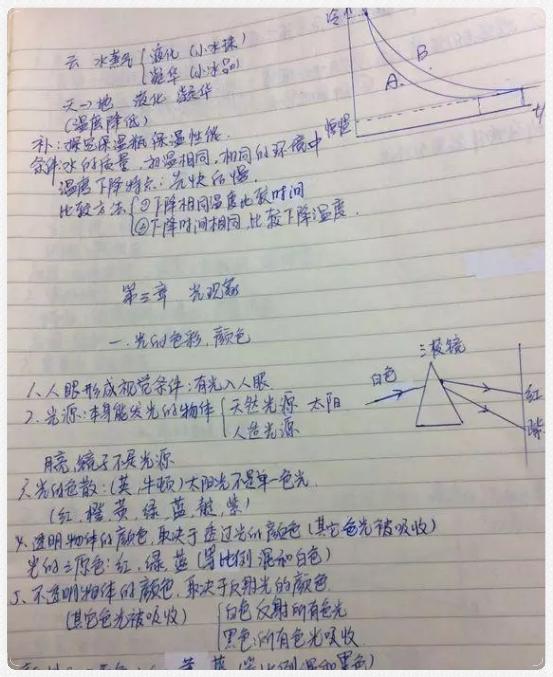 云 水蒸气 { 液化 (小水珠)
凝华 (小冰晶)
天→地 液化 凝华
(温度降低)
补:探究保温瓶保温性能.
条件:水的质量、初温相同、相同的环境中
温度下降特点:先快后慢.
比较方法 { ① 下降相同温度比较时间
② 下降时间相同,比较下降温度.
A B
室温
t/
第三章 光现象
一.光的色彩、颜色
1、人眼形成视觉条件:有光入人眼
2、光源:本身能发光的物体 { 天然光源 太阳
人造光源
月亮、镜子不是光源
三棱镜
白色
红
紫
3、光的色散:(英、牛顿)太阳光不是单一色光
(红、橙、黄、绿、蓝、靛、紫)
4、透明物体的颜色,取决于透过光的颜色(其它色光被吸收)
光的三原色:红、绿、蓝(等比例混和白色)
5、不透明物体的颜色,取决于反射光的颜色
(其它色光被吸收) { 白色反射所有色光
黑色:所有色光吸收